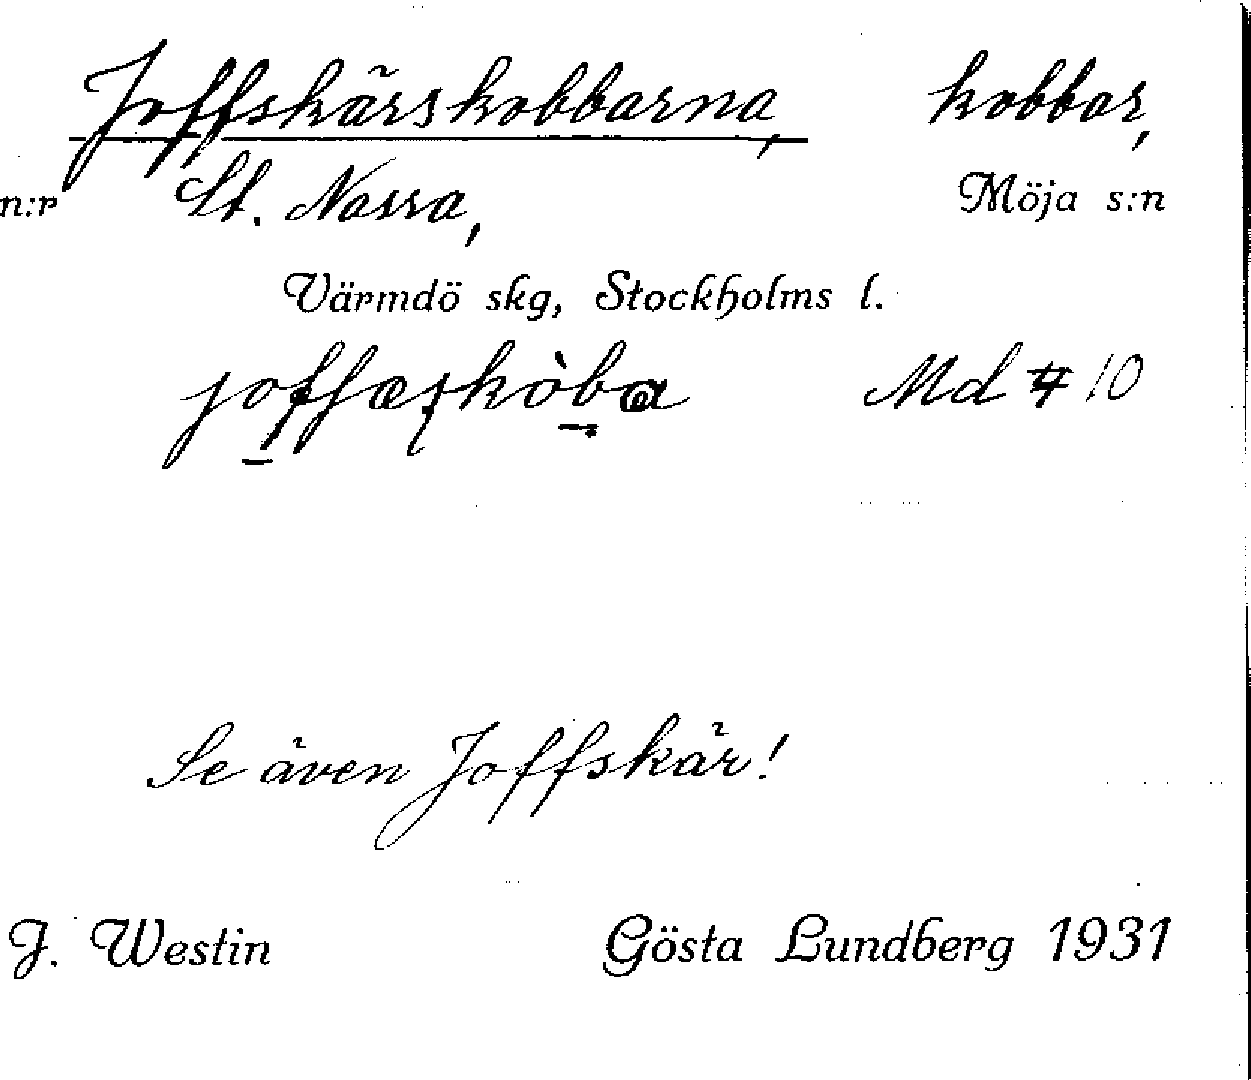 Joffskärskobbarna, kobbar,
n:r St. Nassa, Möja s:n
Värmdö skg, Stockholms l.
Md # 10
Se även Joffskär!
J. Westin Gösta Lundberg 1931